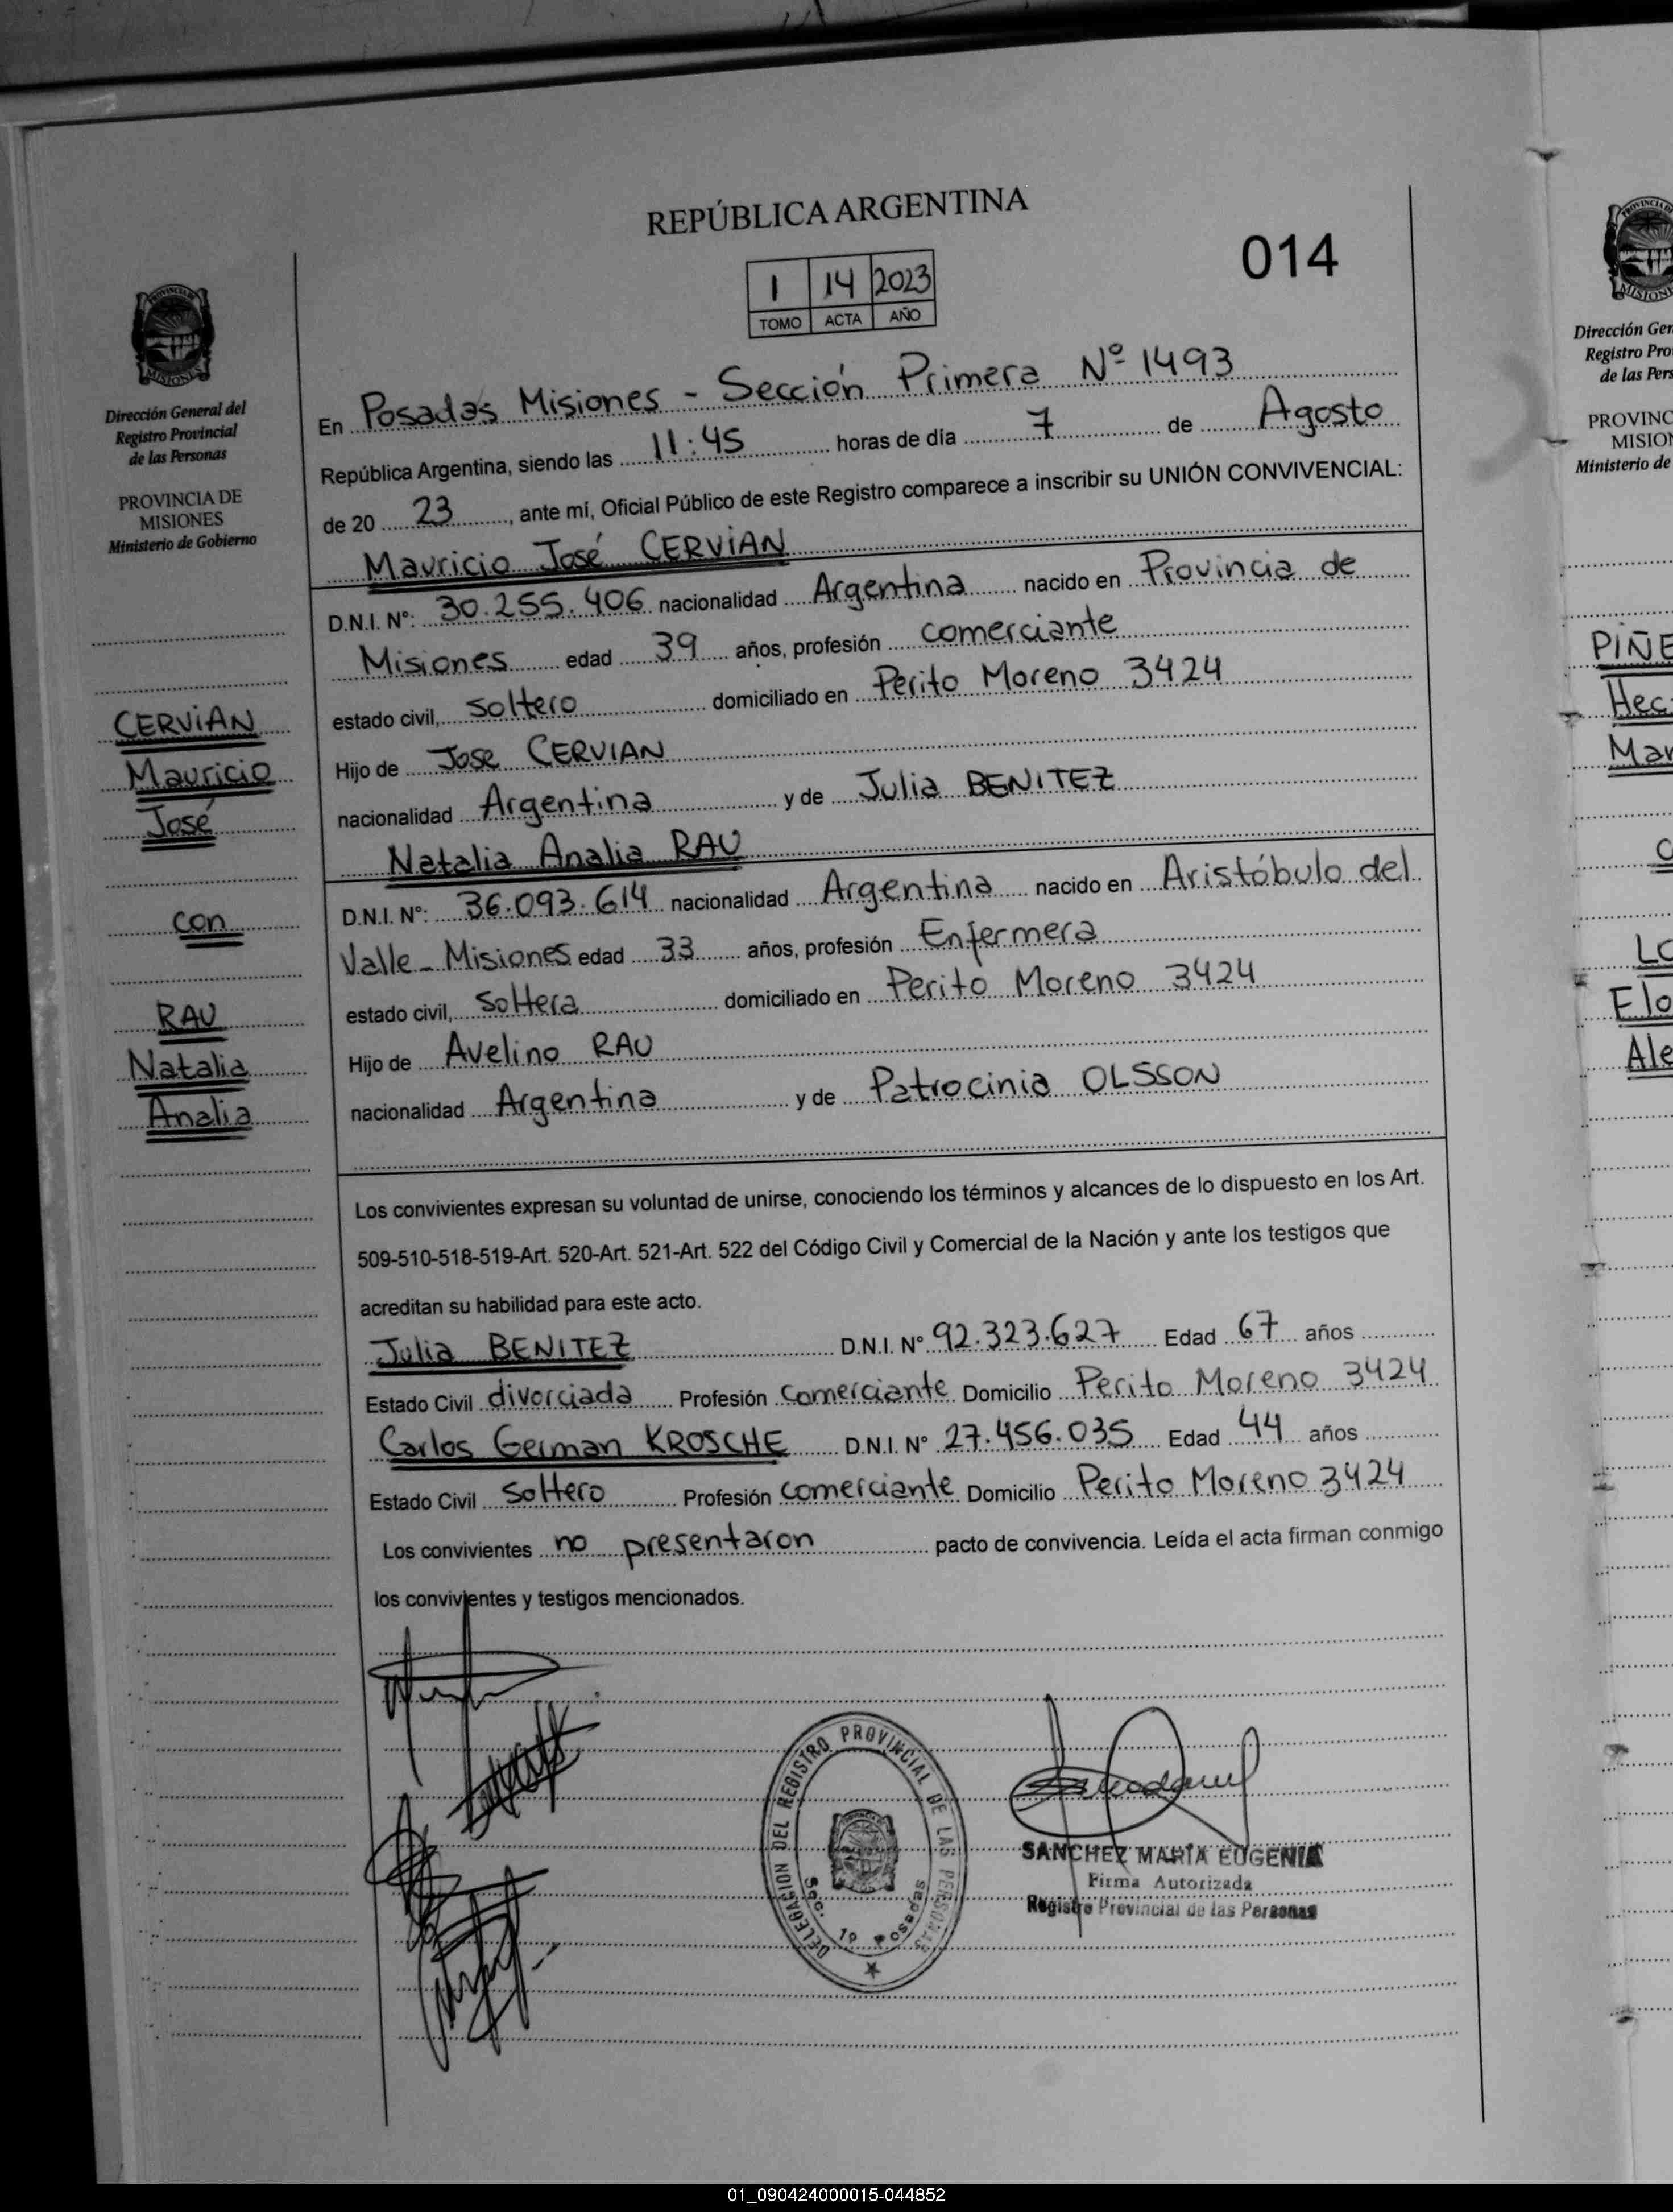 REPÚBLICA ARGENTINA
014
1 14 2023
TOMO ACTA AÑO
PROVINCIA DE
MISIONES
Dirección General del
Registro Provincial
de las Personas
PROVINCIA DE
MISIONES
Ministerio de Gobierno
CERVIAN
Mauricio
José
con
RAU
Natalia
Analia
En Posadas Misiones - Sección Primera Nº 1493
República Argentina, siendo las 11:45 horas de día 7 de Agosto
de 20 23, ante mí, Oficial Público de este Registro comparece a inscribir su UNIÓN CONVIVENCIAL:
Mauricio José CERVIAN
D.N.I. Nº: 30.255.406 nacionalidad Argentina nacido en Provincia de
Misiones edad 39 años, profesión comerciante
estado civil, soltero domiciliado en Perito Moreno 3424
Hijo de Jose CERVIAN
nacionalidad Argentina y de Julia BENITEZ
Natalia Analia RAU
D.N.I. Nº: 36.093.614 nacionalidad Argentina nacido en Aristóbulo del
Valle - Misiones edad 33 años, profesión Enfermera
estado civil, Soltera domiciliado en Perito Moreno 3424
Hijo de Avelino RAU
nacionalidad Argentina y de Patrocinia OLSSON
Los convivientes expresan su voluntad de unirse, conociendo los términos y alcances de lo dispuesto en los Art.
509-510-518-519-Art. 520-Art. 521-Art. 522 del Código Civil y Comercial de la Nación y ante los testigos que
acreditan su habilidad para este acto.
Julia BENITEZ D.N.I. Nº 92.323.627 Edad 67 años
Estado Civil divorciada Profesión comerciante Domicilio Perito Moreno 3424
Carlos German KROSCHE D.N.I. Nº 27.456.035 Edad 44 años
Estado Civil Soltero Profesión comerciante Domicilio Perito Moreno 3424
Los convivientes no presentaron pacto de convivencia. Leída el acta firman conmigo
los convivientes y testigos mencionados.
DELEGACION DEL REGISTRO PROVINCIAL DE LAS PERSONAS
Sec. 1º Posadas
SANCHEZ MARÍA EUGENIA
Firma Autorizada
Registro Provincial de las Personas
PROVINCIA DE
MISIONES
Dirección Gen
Registro Pro
de las Pers
PROVINC
MISION
Ministerio de
PIÑE
Hec
Mar
C
LO
Elo
Ale
01_090424000015-044852